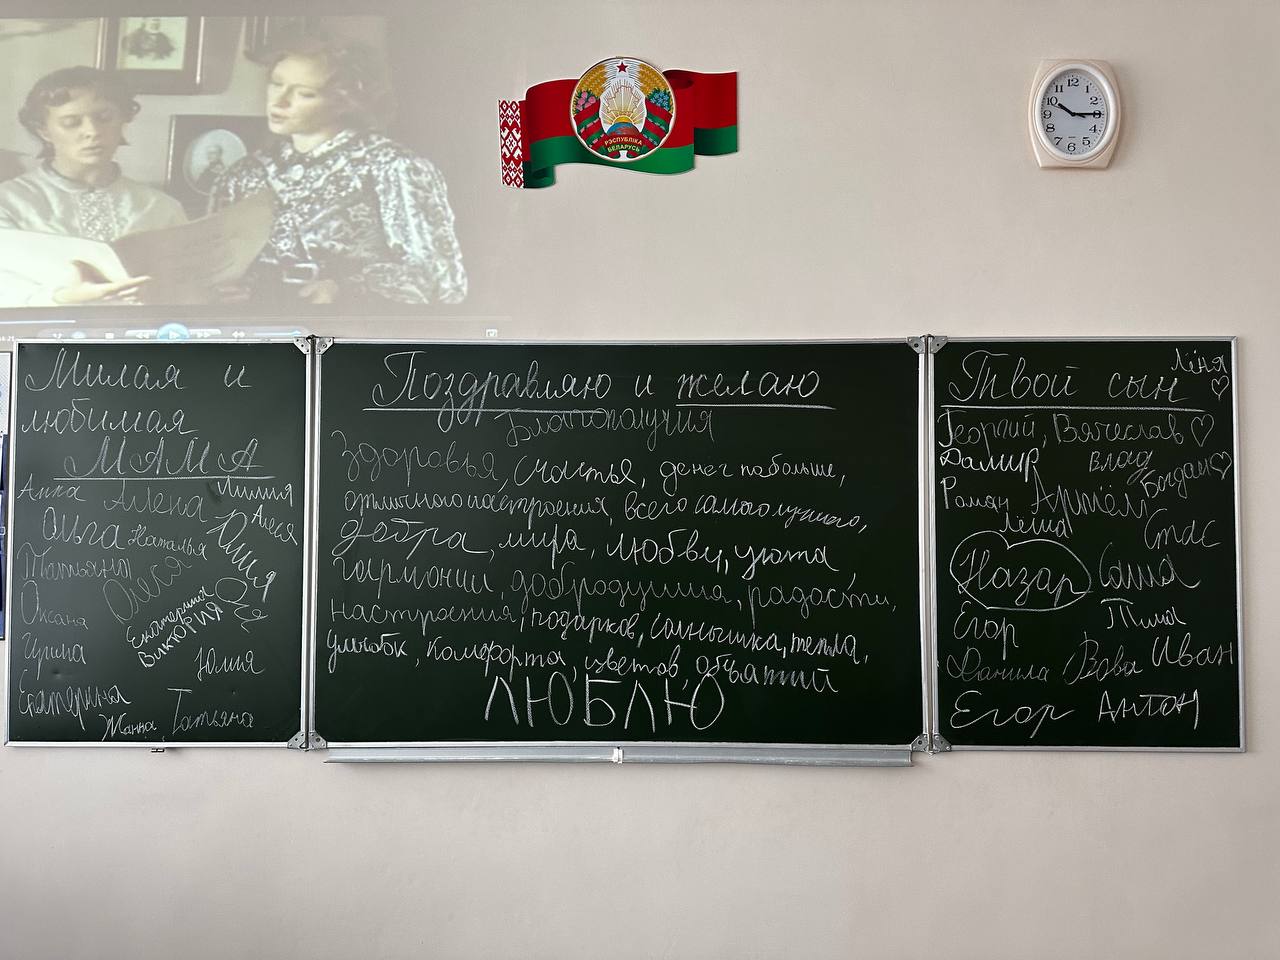 РЭСПУБЛІКА
БЕЛАРУСЬ
12
11 1
10 2
9 3
8 4
7 6 5
Милая и
любимая
МАМА
Анна Алена Лилия
Ольга Наталья Юлия Алеся
Татьяна Олеся Оля
Оксана Екатерина
Виктория
Ирина Юлия
Екатерина
Жанна Татьяна
Поздравляю и желаю
Благополучия
Здоровья, счастья, денег побольше,
отличного настроения, всего самого лучшего,
добра, мира, любви, уюта
гармонии, добродушия, радости,
настроения, подарков, солнышка, тепла,
улыбок, комфорта, цветов, объятий
ЛЮБЛЮ
Лёня
Твой сын
Георгий, Вячеслав
Дамир Влад
Богдан
Роман Артём
Лёша Стас
Назар Саша
Егор Тима
Данила Вова Иван
Егор Антон